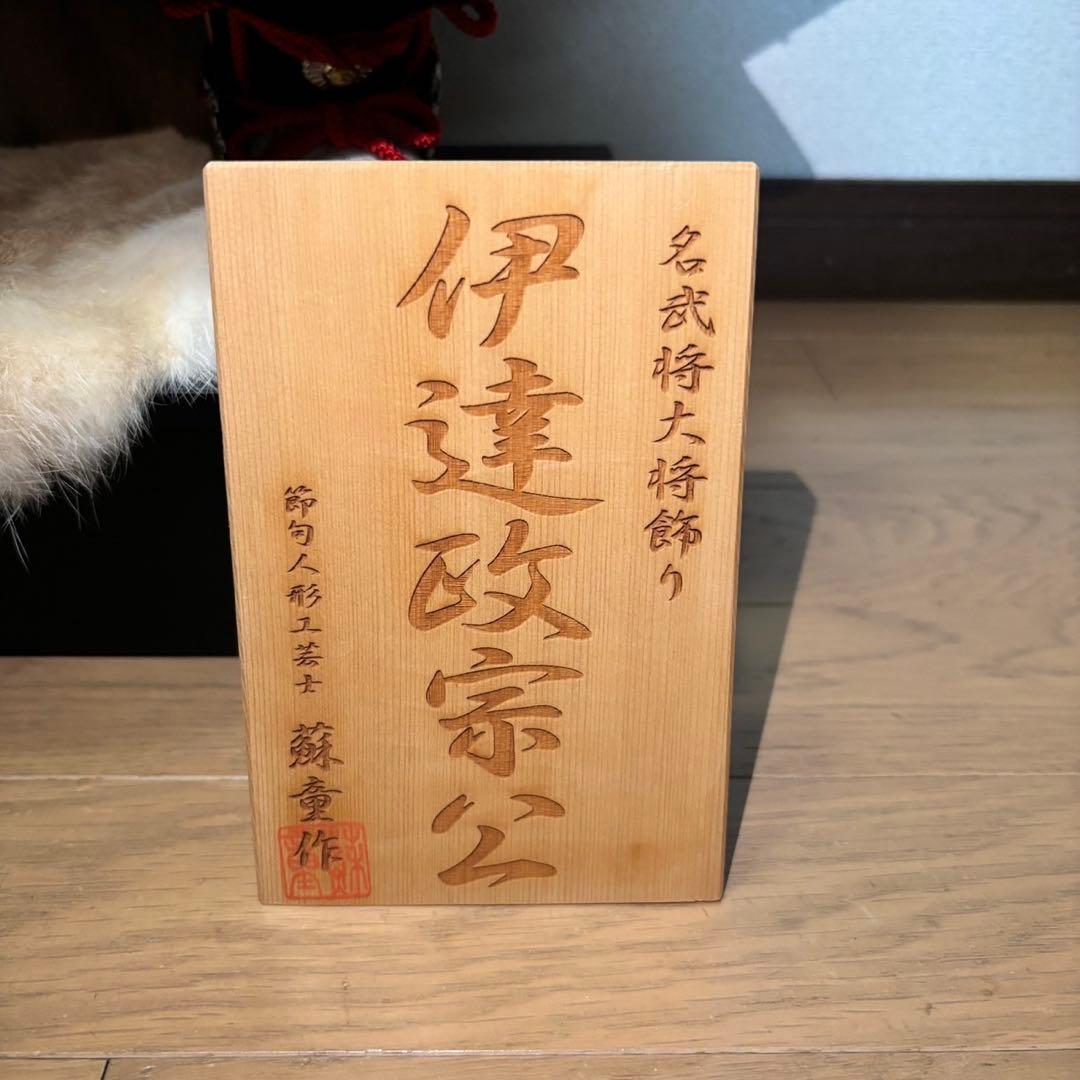 名武将大将飾り
伊達政宗公
節句人形工芸士 蘇童作